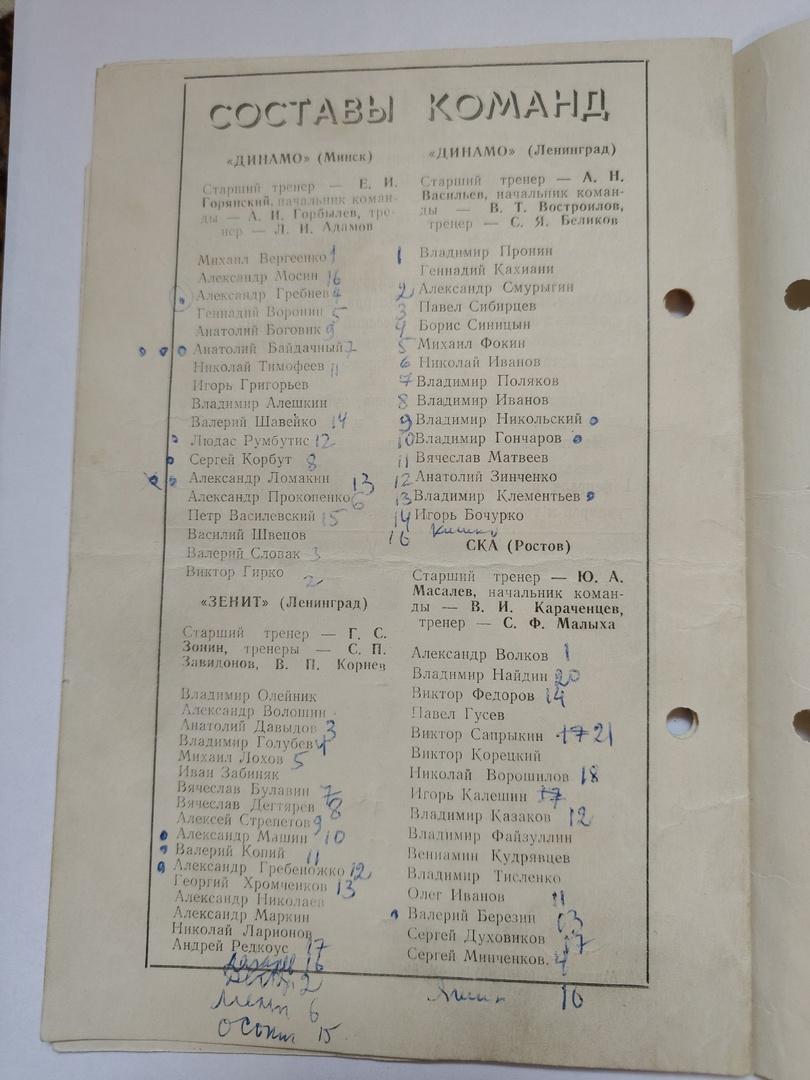 СОСТАВЫ КОМАНД
«ДИНАМО» (Минск)
Старший тренер — Е. И.
Горянский, начальник коман-
ды — А. И. Горбылев, тре-
нер — Л. И. Адамов
Михаил Вергеенко 1
Александр Мосин 16
Александр Гребнев 4
Геннадий Воронин 5
Анатолий Боговик 9
Анатолий Байдачный 7
Николай Тимофеев 11
Игорь Григорьев
Владимир Алешкин
Валерий Шавейко 14
Людас Румбутис 12
Сергей Корбут 8
Александр Ломакин 13
Александр Прокопенко 6
Петр Василевский 15
Василий Швецов
Валерий Словак 3
Виктор Гирко 2
«ЗЕНИТ» (Ленинград)
Старший тренер — Г. С.
Зонин, тренеры — С. П.
Завидонов, В. П. Корнев
Владимир Олейник
Александр Волошин
Анатолий Давыдов 3
Владимир Голубев 4
Михаил Лохов 5
Иван Забиняк
Вячеслав Булавин 7
Вячеслав Дегтярев 8
Алексей Стрепетов 9
Александр Машин 10
Валерий Копий 11
Александр Гребеножко 12
Георгий Хромченков 13
Александр Николаев
Александр Маркин
Николай Ларионов
Андрей Редкоус 17
16
2
6
Осокин 15
«ДИНАМО» (Ленинград)
Старший тренер — А. Н.
Васильев, начальник коман-
ды — В. Т. Востроилов,
тренер — С. Я. Беликов
1 Владимир Пронин
Геннадий Кахиани
2 Александр Смурыгин
3 Павел Сибирцев
4 Борис Синицын
5 Михаил Фокин
6 Николай Иванов
7 Владимир Поляков
8 Владимир Иванов
9 Владимир Никольский
10 Владимир Гончаров
11 Вячеслав Матвеев
12 Анатолий Зинченко
13 Владимир Клементьев
14 Игорь Бочурко
16
СКА (Ростов)
Старший тренер — Ю. А.
Масалев, начальник коман-
ды — В. И. Караченцев,
тренер — С. Ф. Малыха
Александр Волков 1
Владимир Найдин 20
Виктор Федоров 14
Павел Гусев
Виктор Сапрыкин 17 21
Виктор Корецкий
Николай Ворошилов 18
Игорь Калешин 17
Владимир Казаков 12
Владимир Файзуллин
Вениамин Кудрявцев
Владимир Тисленко
Олег Иванов 11
Валерий Березин 13
Сергей Духовиков 17
Сергей Минченков. 4
Яшин 16